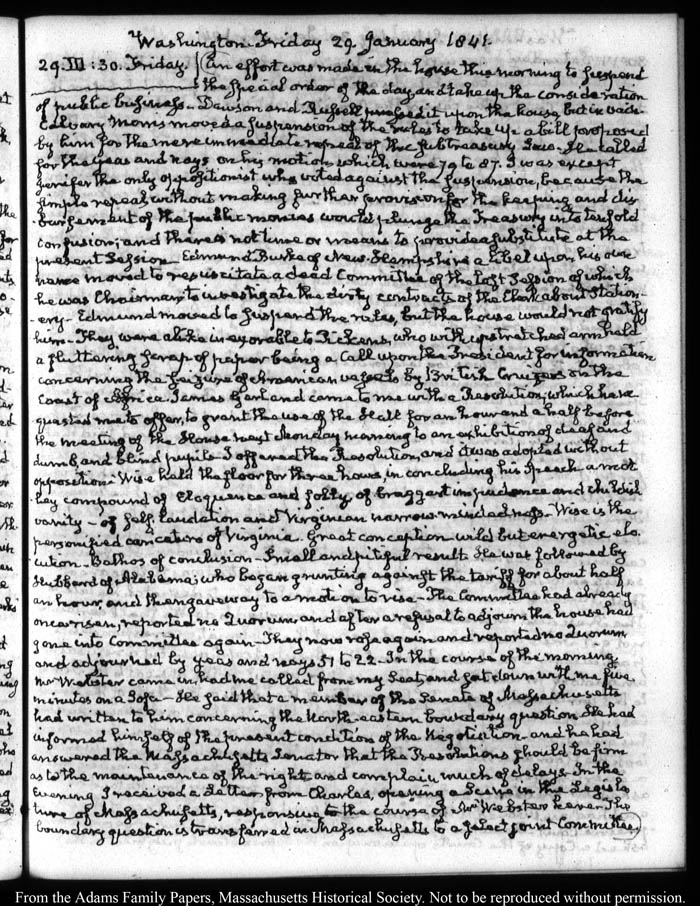 Washington Friday 29 January 1841.
29. III:30. Friday. An effort was made in the house this morning to suspend
the special order of the day and take up the consideration
of public business. Dawson and Russell pressed it upon the house, but in vain
Calvary Morris moved a suspension of the rules to take up a bill proposed
by him for the mere immediate repeal of the Subtreasury Law. He called
for the yeas and nays on his motion which were 79 to 87. I was except
Jenifer the only oppositionist who voted against the suspension, because the
simple repeal without making further provision for the keeping and dis-
bursement of the public monies would plunge the Treasury into tenfold
confusion; and there is not time or means to provide a substitute at the
present Session. Edmund Burke of New Hampshire a libel upon his own
name moved to resuscitate a dead Committee of the last Session of which
he was Chairman to investigate the dirty contracts of the Clerk about Station-
ery. Edmund moved to suspend the rules, but the house would not gratify
him. They were alike inexorable to Pickens, who with outstretched arm held
a fluttering scrap of paper being a Call upon the President for information
concerning the seizure of American vessels by British Cruizers on the
Coast of Africa. James Garland came to me with a Resolution, which he re-
quested me to offer, to grant the use of the Hall for an hour and a half before
the meeting of the House next Monday morning to an exhibition of deaf and
dumb, and blind pupils. I offered the Resolution, and it was adopted without
opposition. Wise held the floor for three hours, in concluding his Speech a mot-
ley compound of Eloquence and folly, of braggart impudence and childish
vanity — of self laudation and Virginian narrow mindedness. Wise is the
personified caricature of Virginia. Great conception wild but energetic elo-
cution. Bathos of conclusion. Small and pitiful result. He was followed by
Hubbard of Alabama; who began grunting against the tariff for about half
an hour, and then gave way to a motion to rise. The Committee had already
once arisen, reported no Quorum and after a refusal to adjourn the house had
gone into Committee again. They now rose again and reported no Quorum
and adjourned by yeas and nays 51 to 22. In the course of the morning
Mr Webster came in, had me called from my Seat, and sat down with me five
minutes on a Sofa. He said that a member of the Senate of Massachusetts
had written to him concerning the North-eastern boundary question. He had
informed himself of the present condition of the Negotiation and he had
answered the Massachusetts Senator that the Resolutions should be firm
as to the maintenance of the right and complain much of delays. In the
Evening I received a Letter from Charles, opening a Scene in the Legisla-
ture of Massachusetts, responsive to the course of Mr Webster here. The
boundary question is transferred in Massachusetts to a select joint Committee,
From the Adams Family Papers, Massachusetts Historical Society. Not to be reproduced without permission.